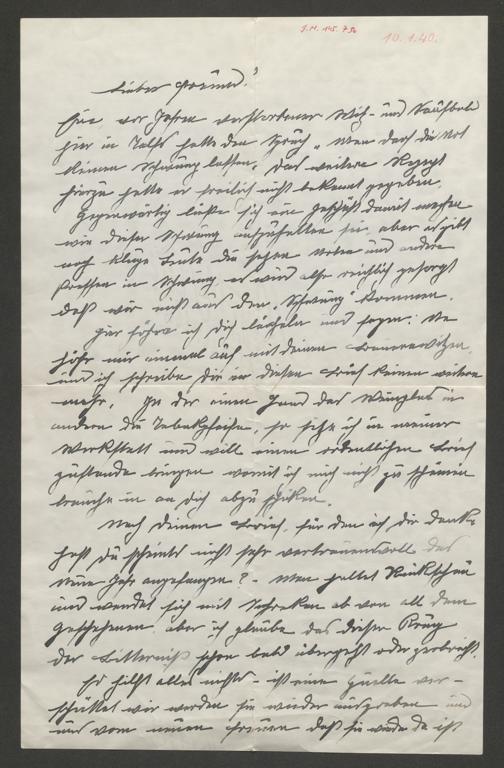 I.N. 145.756
10.1.40.
Lieber Freund!
Ein vor Jahren verstorbener Witz- und
hier in Telfs hatte den Spruch „Man darf die Not
keinen Schwung lassen. Das weitere Rezept
hierzu hatte er freilich nicht bekannt gegeben.
Gegenwärtig ließe sich ein Geschäft damit machen
wie dieser Schwung aufzuhalten sei, aber es gibt
noch kluge Leute die sehen Noten und andere
Pressen in Schwung es wird also reichlich gesorgt
daß wir nicht aus dem Schwung kommen.
Hier höre ich dich lächeln und sagen: Na
hör mir einmal auf mit deinen Bauernwitzen,
und ich schreibe dir in diesen Brief keinen weitern
mehr. In der einen Hand das Weinglas in
andern die Tabakpfeife, so sitze ich in meiner
Werkstatt und will einen ordentlichen Brief
zustande bringen womit ich mich nicht zu schämen
brauche in an dich abzuschicken.
Nach deinem Brief, für den ich dir danke
hast du scheints nicht sehr vertrauensvoll das
Neue Jahr angefangen? - Man haltet Rückschau
und wendet sich mit Schrecken ab von all dem
Geschehenen aber ich glaube das dieser Krug
der Bitterniß schon bald übergeht oder zerbricht.
Es hilft alles nichts - ist eine Quelle ver-
schüttet wir werden sie wieder ausgraben und
uns vom neuen freuen daß sie wieder da ist